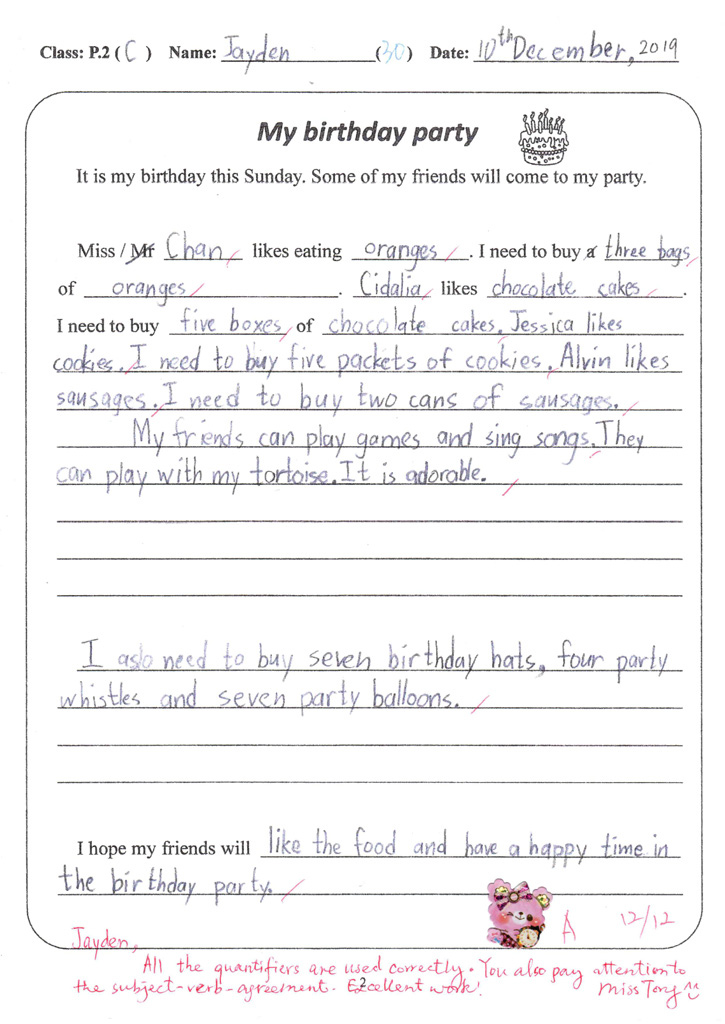 Class: P.2 ( C ) Name: Jayden (30) Date: 10th December, 2019
My birthday party
It is my birthday this Sunday. Some of my friends will come to my party.
Miss / Mr Chan likes eating oranges. I need to buy a three bags
of oranges. Cidalia likes chocolate cakes.
I need to buy five boxes of chocolate cakes. Jessica likes
cookies. I need to buy five packets of cookies. Alvin likes
sausages. I need to buy two cans of sausages.
My friends can play games and sing songs. They
can play with my tortoise. It is adorable.
I aslo need to buy seven birthday hats, four party
whistles and seven party balloons.
I hope my friends will like the food and have a happy time in
the birthday party.
A 12/12
Jayden,
All the quantifiers are used correctly. You also pay attention to
the subject-verb-agreement. Excellent work! Miss Tong
2